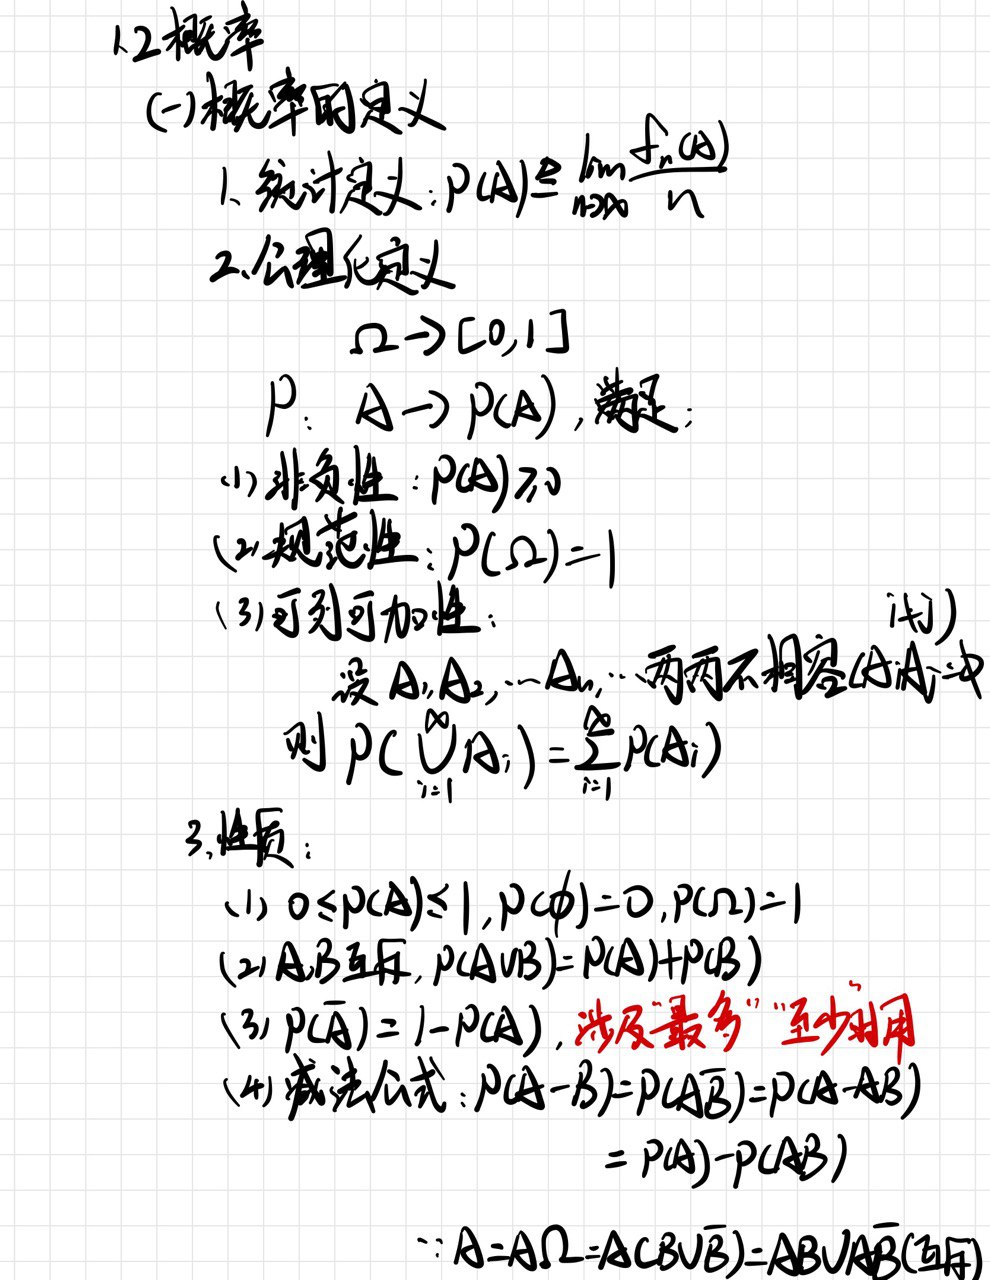 1.2概率
(一)概率的定义
1、统计定义:P(A)≜lim n→∞ fₙ(A)/n
2、公理化定义
Ω→[0,1]
P: A→P(A),满足:
(1)非负性:P(A)≥0
(2)规范性:P(Ω)=1
(3)可列可加性:
设A₁,A₂,…Aₙ,…两两不相容(AᵢAⱼ=φ i≠j)
则P(∪ᵢ₌₁^∞ Aᵢ)=∑ᵢ₌₁^∞ P(Aᵢ)
3、性质:
(1) 0≤P(A)≤1,P(φ)=0,P(Ω)=1
(2) A,B互斥,P(A∪B)=P(A)+P(B)
(3) P(A̅)=1-P(A),涉及“最多”“至少”时用
(4)减法公式:P(A-B)=P(AB̅)=P(A-AB)
=P(A)-P(AB)
∵A=AΩ=A(B∪B̅)=AB∪AB̅(互斥)